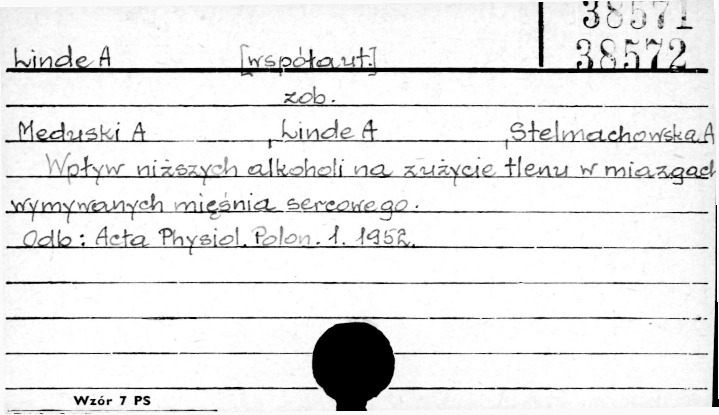 38571
Linde A [współaut.] 38572
zob.
Meduski A, Linde A, Stelmachowska A
Wpływ niższych alkoholi na zużycie tlenu w miazgach
wymywanych mięśnia sercowego.
Odb: Acta Physiol. Polon. 1. 1952.
Wzór 7 PS